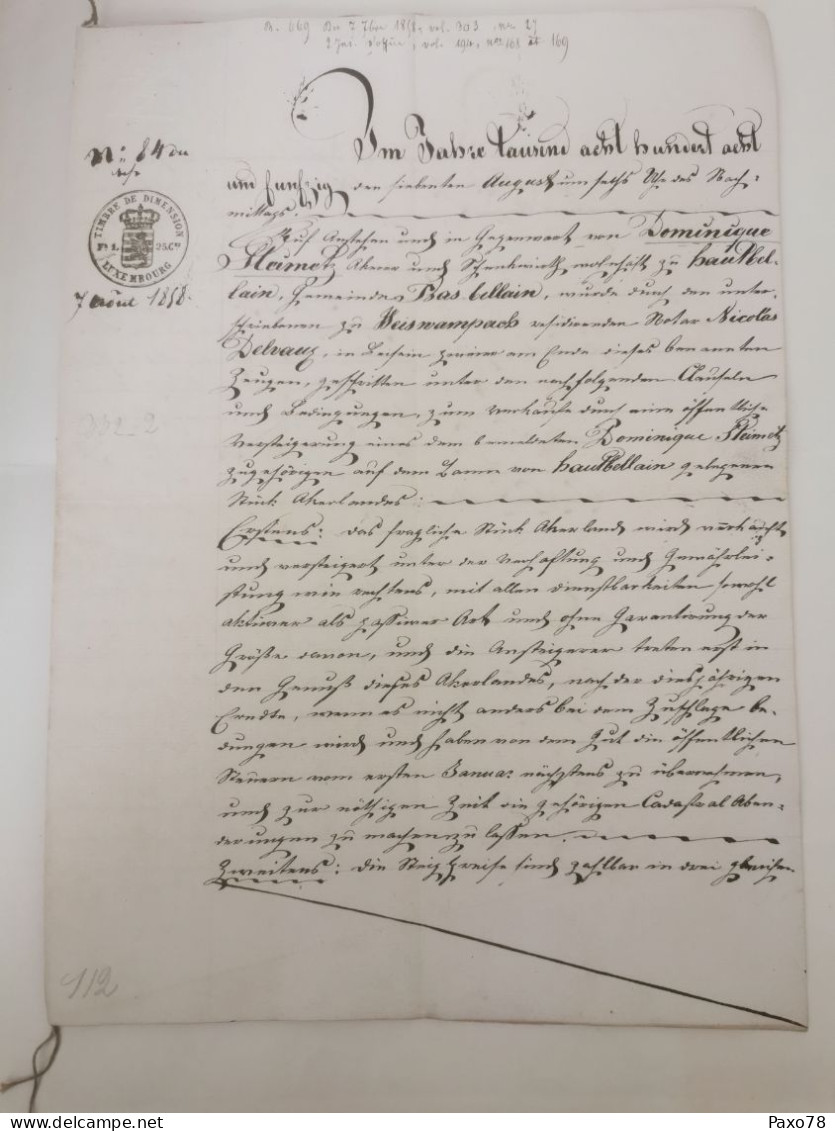 N: 669 Du 7 7bre 1858, vol. 303, no 27
2 Jai. vol. 194, nos 168 et 169
Im Jahre tausend acht hundert acht
No 84 du
und funfzig den siebenten August um sechs Uhr des Nach=
mittags.
TIMBRE DE DIMENSION
No 1. 25 Ces
LUXEMBOURG
7 août 1858.
Auf Anstehen und in Gegenwart von Dominique
Steimetz Akerer und Schenkwirth wohnhaft zu hautbel-
lain, Gemeinde Basbellain, wurde durch den unter-
schriebenen zu Weiswampach residirenden Notar Nicolas
Delvaux, in Beisein zweier am Ende dieses benannten
Zeugen, geschritten unter den nachfolgenden Clauseln
und Bedingungen, zum Verkaufe durch eine öffentliche
Versteigerung eines dem bemeldeten Dominique Steimetz
zugehörigen auf dem Banne von hautbellain gelegenen
Stück Akerlandes:
Erstens: das fragliche Stück Akerland wird verkauft
und versteigert unter der Verhaftung und Gewährlei-
stung wie rechtens, mit allen Dienstbarkeiten sowohl
aktiver als passiver Art und ohne Garantirung der
Größe davon, und die Ansteigerer treten erst in
den Genuß dieses Akerlandes, nach der diesjährigen
Erndte, wenn es nicht anders bei dem Zuschlage be-
dungen wird und haben von dem Gut die öffentlichen
Steuern vom ersten Januar nächstens zu übernehmen,
und zur nöthigen Zeit die gehörigen Cadastral Aben-
derungen zu machen zu lassen.
Zweitens: die Steigpreise sind zahlbar in drei gleichen
112
Paxo78